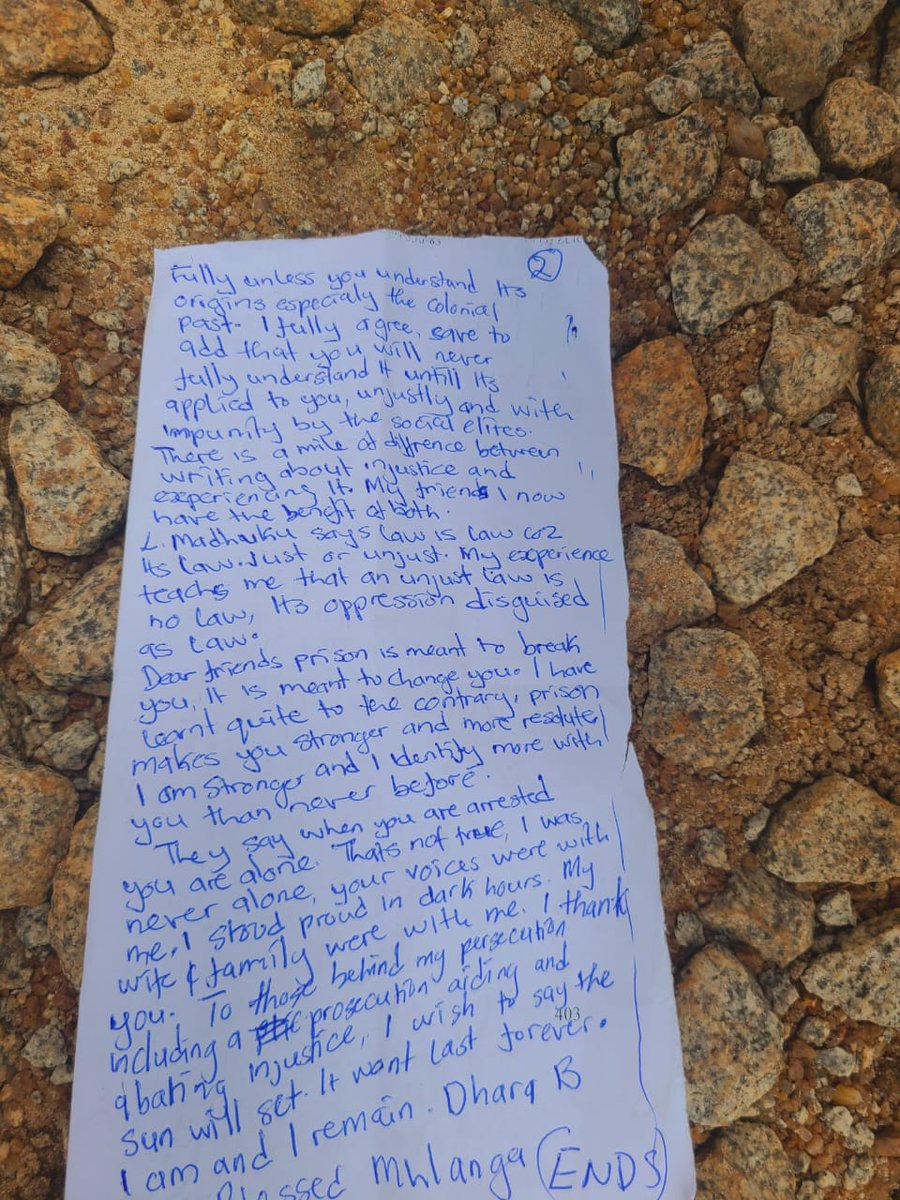 ②
Fully unless you understand Its
origins especialy the colonial
past. I fully agree, save to
add that you will never
fully understand It untill Its
applied to you, unjustly and with
impunity by the social elites.
There is a mile of diffrence between
writing about injustice and
experiencing It. My friends I now
have the benefit of both.
L. Madhuku says law is law coz
Its law. Just or unjust. My experience
teachs me that an unjust law is
no law, Its oppression disguised
as law.
Dear friends prison is meant to break
you, It is meant to change you. I have
learnt quite to the contrary, prison
makes you stronger and more resolute,
I am stronger and I identify more with
you than never before.
They say when you are arrested
you are alone. Thats not true, I was
never alone, your voices were with
me. I stood proud in dark hours. My
wife & family were with me. I thank
you. To those behind my persecution
including a prosecution aiding and
403
abating injustice, I wish to say the
sun will set. It wont last forever.
I am and I remain. Dhara B
Blessed Mhlanga (ENDS)